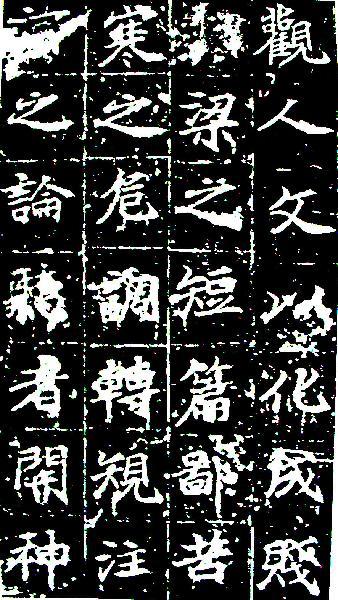 觀人文以化成賤
梁之短篇鄙苦
寒之危調轉規注
之論者開神